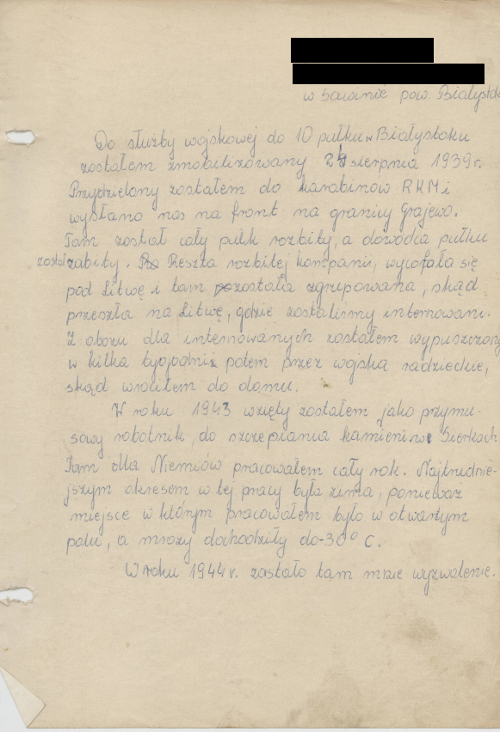 w Sawinie pow. Białystok
Do służby wojskowej do 10 pułku w Białystoku
zostałem zmobilizowany 24 sierpnia 1939 r.
Przydzielony zostałem do karabinów RKM i
wysłano nas na front na granicy Grajewo.
Tam został cały pułk rozbity, a dowódca pułku
został zabity. Reszta rozbitej kompanii, wycofała się
pod Litwę i tam została zgrupowana, skąd
przeszła na Litwę, gdzie zostaliśmy internowani.
Z obozu dla internowanych zostałem wypuszczony
w kilka tygodni potem przez wojska radzieckie,
skąd wróciłem do domu.
W roku 1943 wzięty zostałem jako przymu-
sowy robotnik, do szczepiania kamieni w Sierkach
Tam dla Niemców pracowałem cały rok. Najtrudnie-
jszym okresem w tej pracy była zima, ponieważ
miejsce w którym pracowałem było w otwartym
polu, a mrozy dochodziły do -30° C.
W roku 1944 r. zastało tam mnie wyzwolenie.